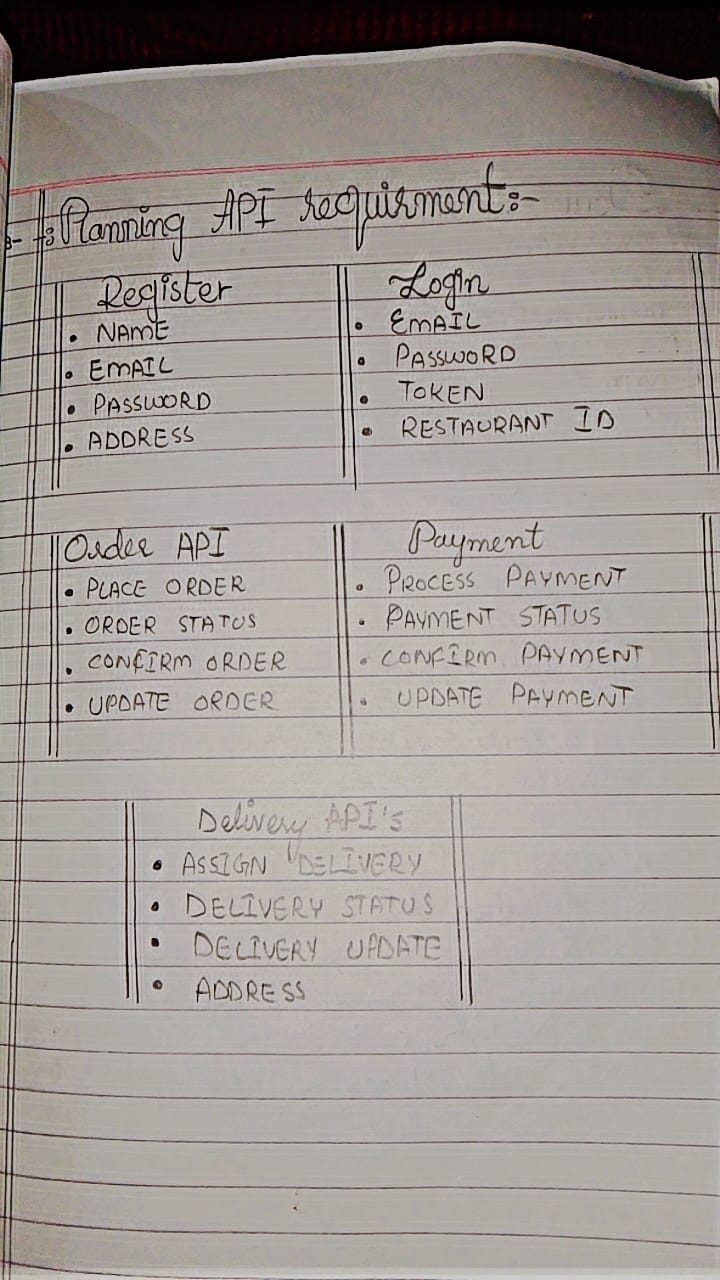 Planning API requirment:-
Register
• NAME
• EMAIL
• PASSWORD
• ADDRESS
Login
• EMAIL
• PASSWORD
• TOKEN
• RESTAURANT ID
Order API
• PLACE ORDER
• ORDER STATUS
• CONFIRM ORDER
• UPDATE ORDER
Payment
• PROCESS PAYMENT
• PAYMENT STATUS
• CONFIRM PAYMENT
• UPDATE PAYMENT
Delivery API's
• ASSIGN DELIVERY
• DELIVERY STATUS
• DELIVERY UPDATE
• ADDRESS